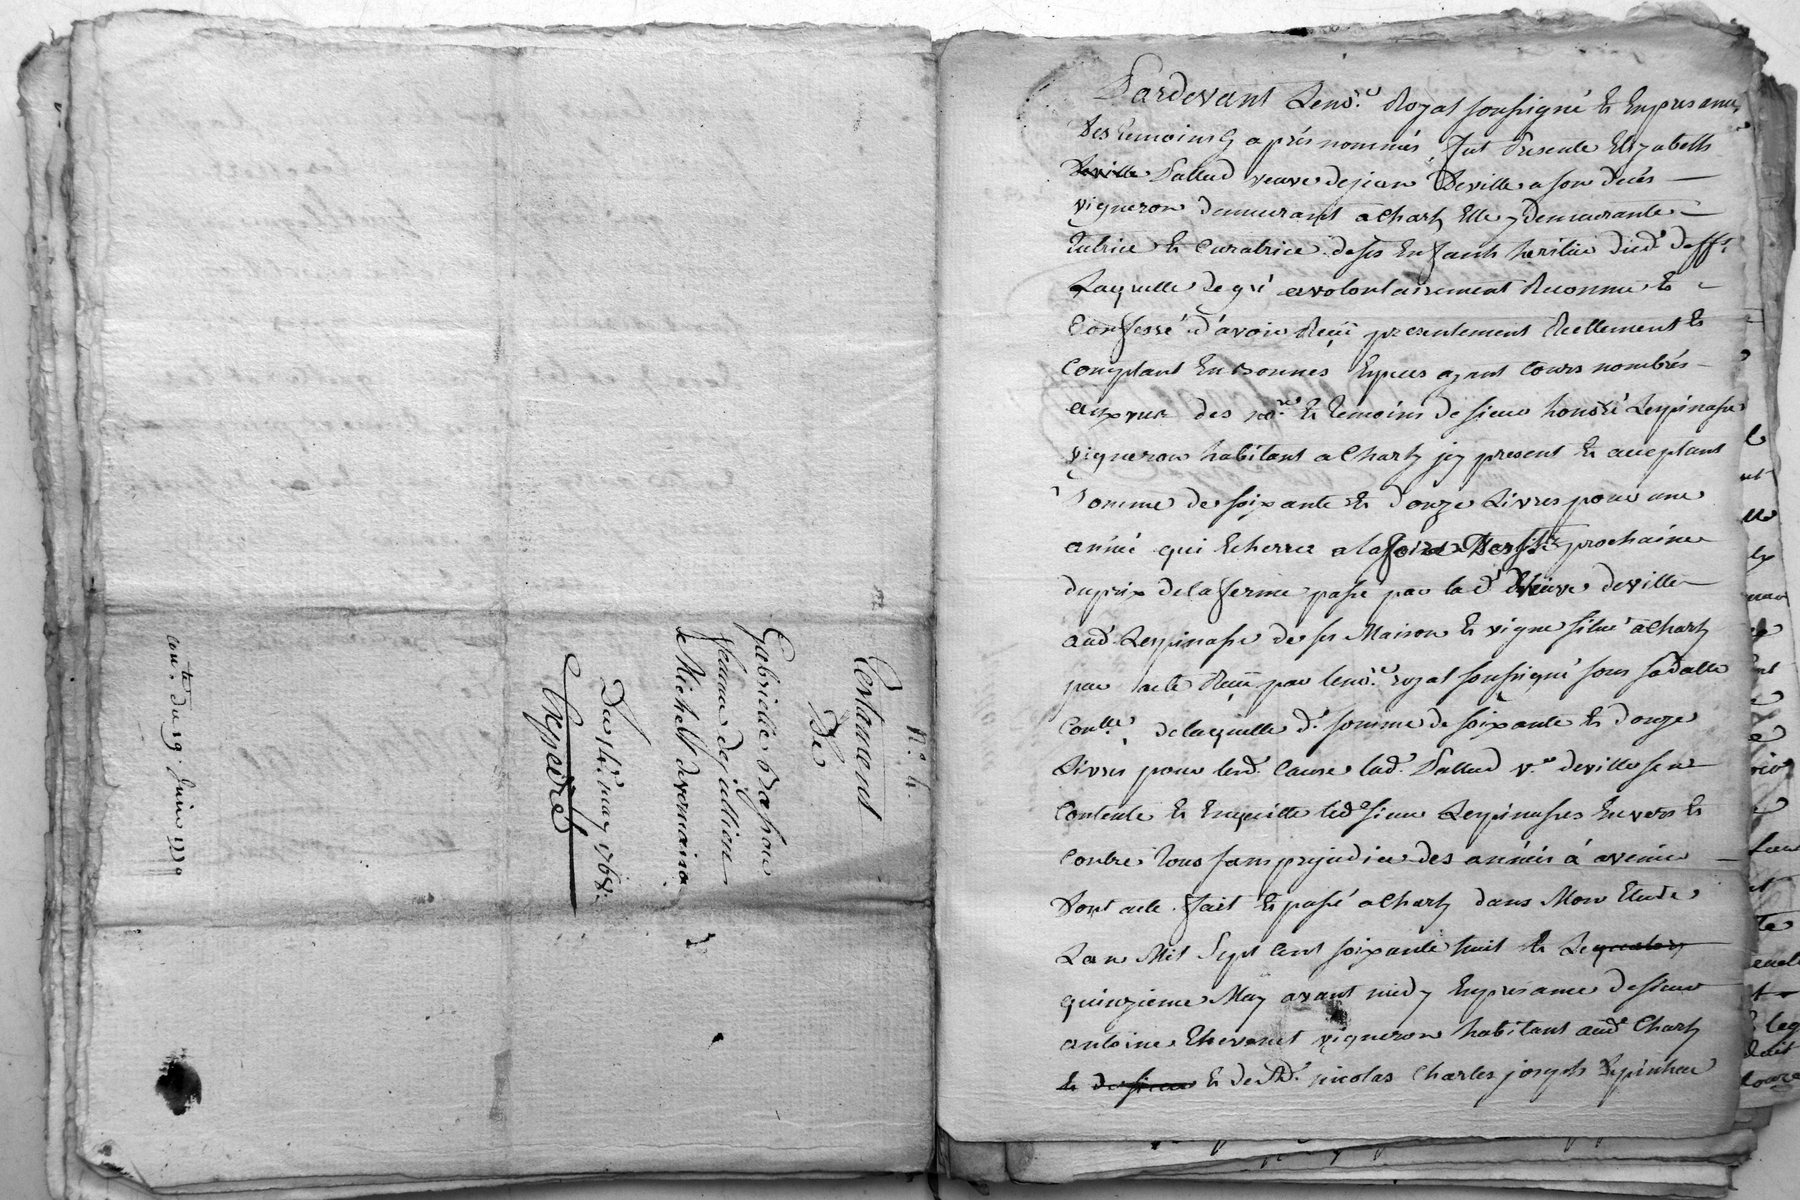 N.° 4.
Testament
De
Gabrielle Dapon
femme de jullien
de Michell devernaina
Du 14: may 1768:
Expedié
con.te du 19 Juin 1779
Pardevant Leno.re Royal soussigné Et Enpresance
Des temoins aprés nommés, fut Presente Elizabeth
Deville Pallud veuve de jean Deville a son decés
vigneron demeurant a Charly Elle y demeurante
tutrice Et Curatrice de ses Enfants heritiers dud.t deff.t
Laquelle de gré a volontairement Reconnu Et
Confessé d'avoir Reçü presentement Reellement Et
Comptant En bonnes Especes ayant Cours nombrés
aux vues des no.re Et temoins de sieur honoré Lespinasse
vigneron habitant a Charly jcy present Et acceptant
Somme de soixante Et douze Livres pour une
année qui Echerra a la foire prochaine
du prix de la ferme passé par la d.e Veuve deville
aud. Lespinasse de ses Maison Et vigne situé a Charly
par acte Reçü par leno.re royal soussigné sous sa datte
Con.lle, de laquelle d.e somme de soixante Et douze
Livres pour led. Cause lad. Pallud v.ve deville sen
Contente Et Enquitte led. sieur Lespinasses Envers Et
Contre tous sans prejudice des années á avenir
Dont acte fait Et passé a Charly dans Mon Etude
Lan Mil Sept Cent soixante huit Et Le quatorz
quinzieme May avant midy Enpresance de sieur
antoine Thevenet vigneron habitant aud. Charly
Et de sieur Et de M.r nicolas Charles joseph